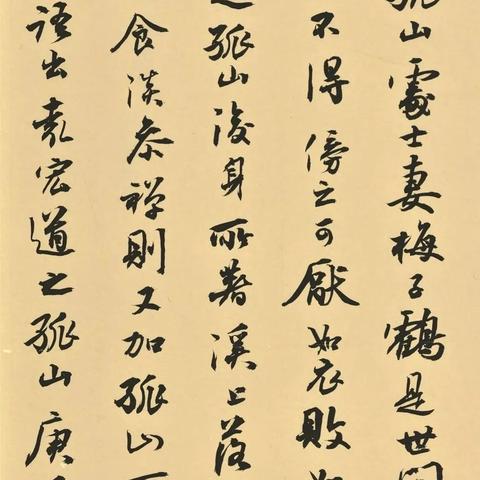 孤山處士妻梅子鶴是世間
不得傍之可厭如衣敗
是孤山後身所著溪上落
食淡參禪則又加孤山
語出袁宏道之孤山庚